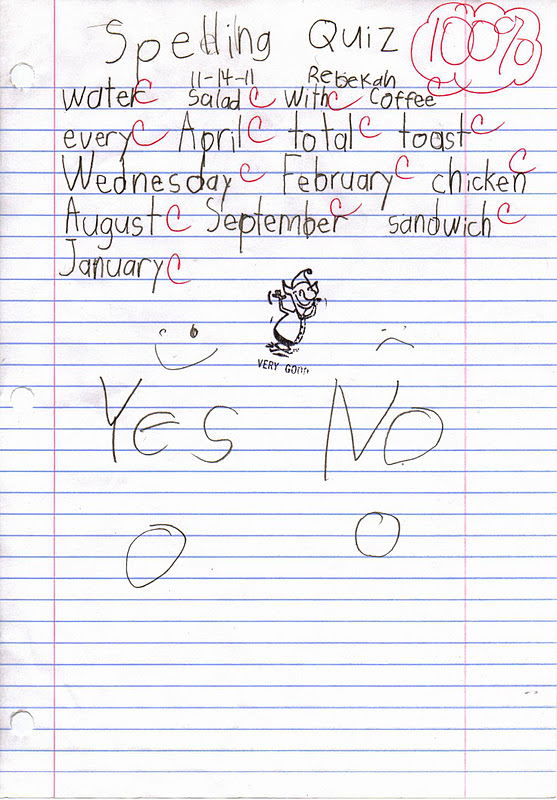 Spelling Quiz 100%
11-14-11 Rebekah
water C Salad C With C Coffee C
every C April C total C toast C
Wednesday C February C chicken C
August C September C sandwich C
January C
VERY GOOD
YES NO